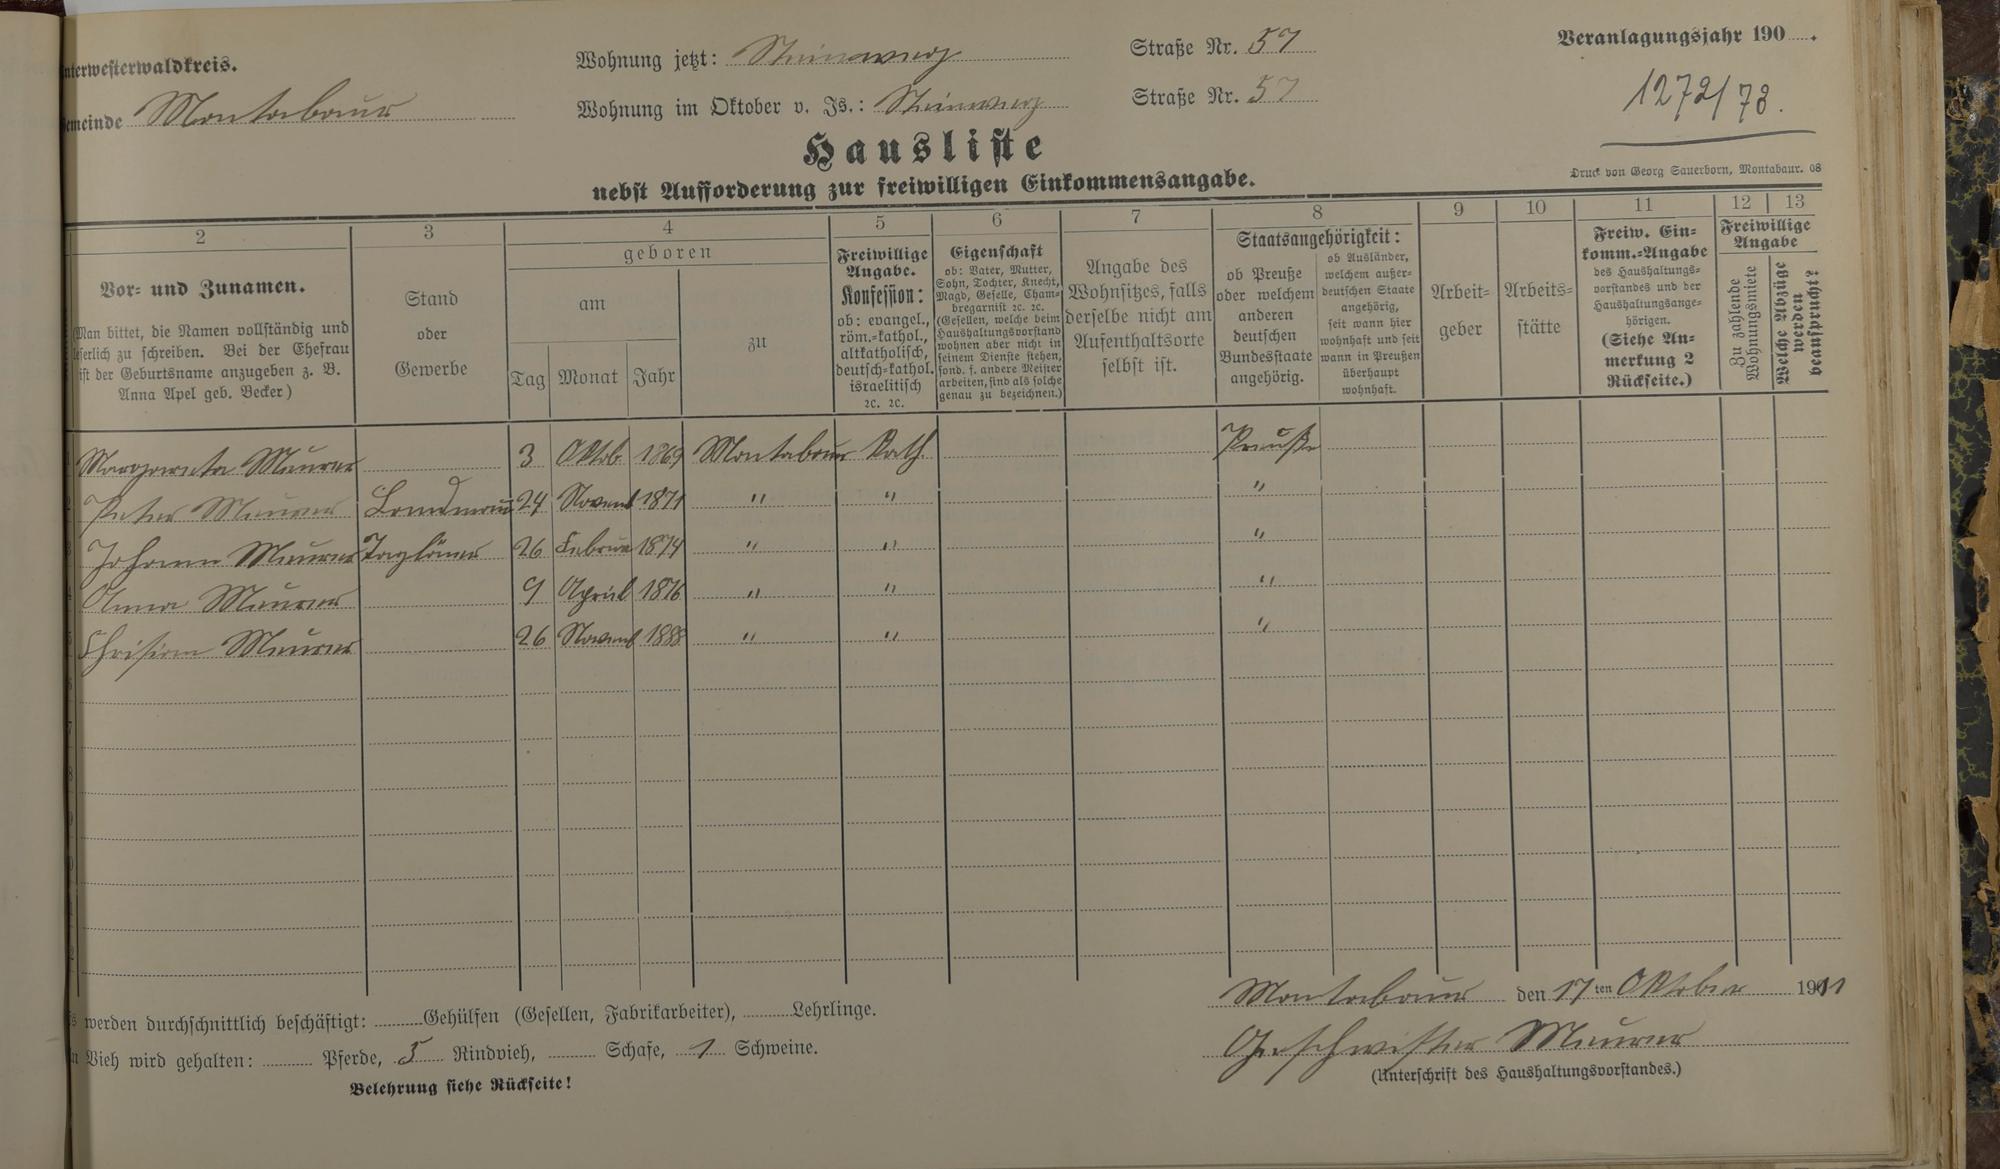 nterwesterwaldkreis.
emeinde Montabaur
Wohnung jetzt: Steinweg Straße Nr. 57
Wohnung im Oktober v. Js.: Steinweg Straße Nr. 57
Veranlagungsjahr 190 .
1272/78.
Hausliste
nebst Aufforderung zur freiwilligen Einkommensangabe.
Druck von Georg Sauerborn, Montabaur. 08
2 3 4 5 6 7 8 9 10 11 12 13
Vor- und Zunamen.
(Man bittet, die Namen vollständig und
leserlich zu schreiben. Bei der Ehefrau
ist der Geburtsname anzugeben z. B.
Anna Apel geb. Becker)
Stand
oder
Gewerbe
geboren
am
Tag Monat Jahr
zu
Freiwillige
Angabe.
Konfession:
ob: evangel.,
röm.-kathol.,
altkatholisch,
deutsch-kathol.
israelitisch
2c. 2c.
Eigenschaft
ob: Vater, Mutter,
Sohn, Tochter, Knecht,
Magd, Geselle, Cham-
bregarnist 2c. 2c.
(Gesellen, welche beim
Haushaltungsvorstand
wohnen aber nicht in
seinem Dienste stehen,
sond. f. andere Meister
arbeiten, sind als solche
genau zu bezeichnen.)
Angabe des
Wohnsitzes, falls
derselbe nicht am
Aufenthaltsorte
selbst ist.
Staatsangehörigkeit:
ob Preuße
oder welchem
anderen
deutschen
Bundesstaate
angehörig.
ob Ausländer,
welchem außer-
deutschen Staate
angehörig,
seit wann hier
wohnhaft und seit
wann in Preußen
überhaupt
wohnhaft.
Arbeit-
geber
Arbeits-
stätte
Freiw. Ein-
komm.-Angabe
des Haushaltungs-
vorstandes und der
Haushaltungsange-
hörigen.
(Siehe An-
merkung 2
Rückseite.)
Freiwillige
Angabe
Zu zahlende
Wohnungsmiete
Welche Abzüge
werden
beansprucht?
Margareta Meurer 3 Oktob 1869 Montabaur Kath. Preuße
Peter Meurer Landmann 24 Novemb 1871 " " "
Johann Meurer Taglöner 26 Februar 1874 " " "
Anna Meurer 9 April 1876 " " "
Christian Meurer 26 Novemb 1888 " " "
Montabaur den 17 ten Oktober 1911
s werden durchschnittlich beschäftigt: Gehülfen (Gesellen, Fabrikarbeiter), Lehrlinge.
n Vieh wird gehalten: Pferde, 5 Rindvieh, Schafe, 1 Schweine.
Geschwister Meurer
(Unterschrift des Haushaltungsvorstandes.)
Belehrung siehe Rückseite!